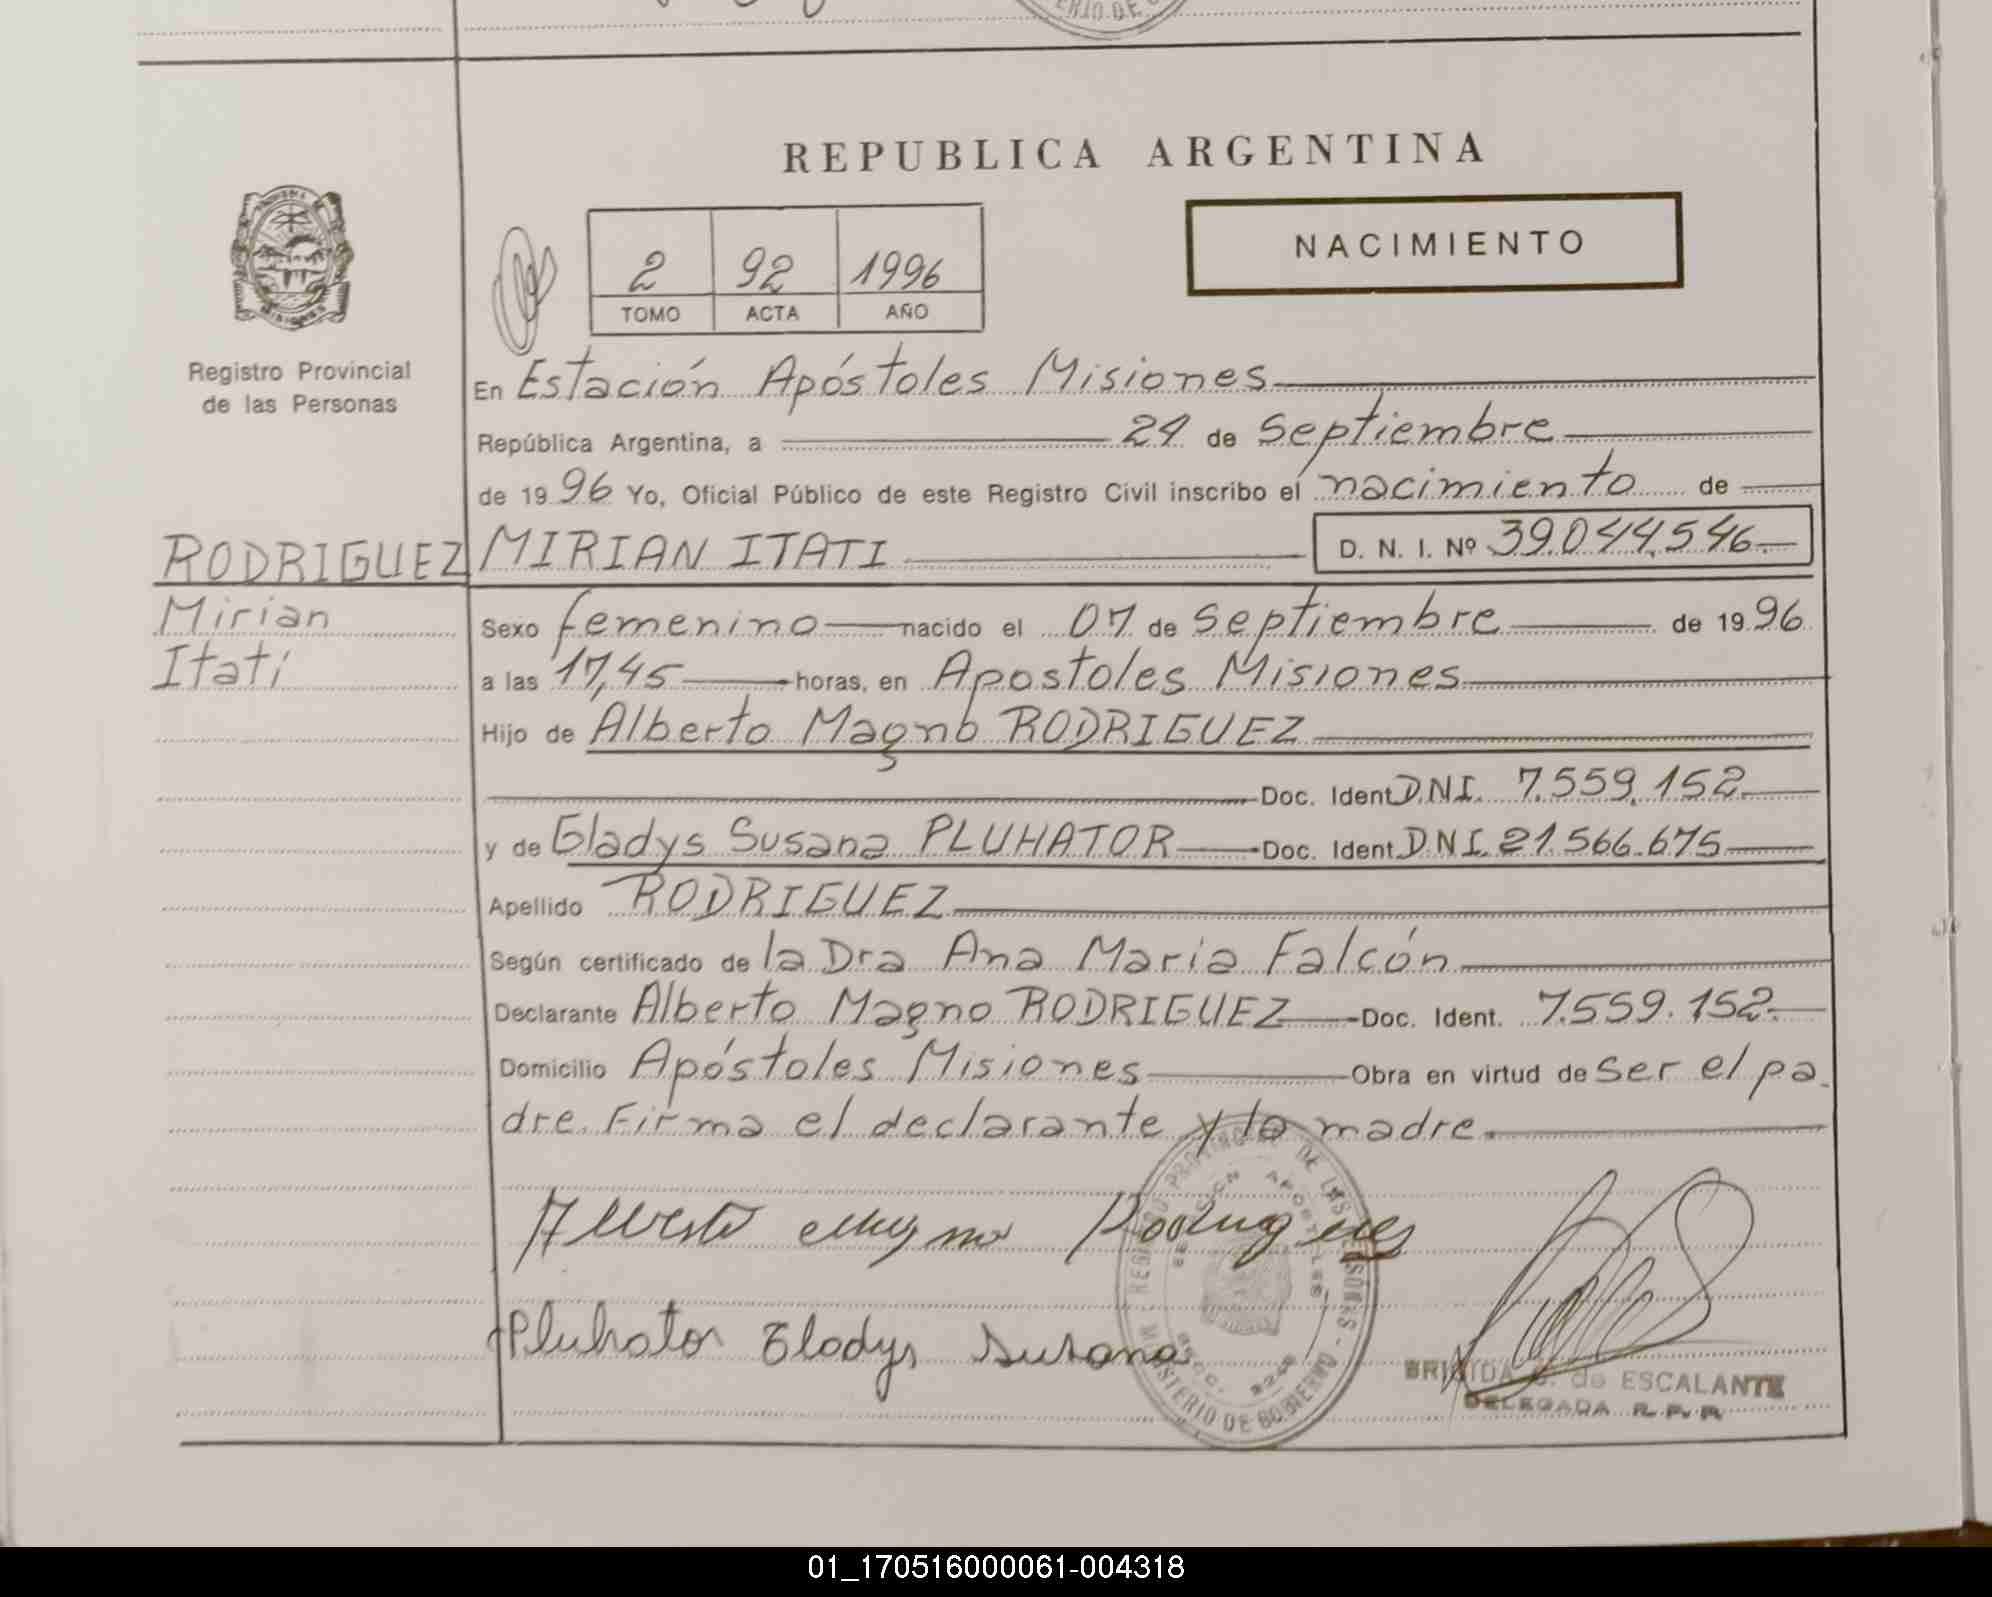 REPUBLICA ARGENTINA
NACIMIENTO
2 92 1996
TOMO ACTA AÑO
Registro Provincial
de las Personas
En Estación Apóstoles Misiones
República Argentina, a 24 de Septiembre
de 1996 Yo, Oficial Público de este Registro Civil inscribo el nacimiento de
RODRIGUEZ MIRIAN ITATI D. N. I. Nº 39.044.546.
Mirian
Itatí
Sexo femenino nacido el 07 de Septiembre de 1996
a las 17,45 horas, en Apostoles Misiones
Hijo de Alberto Magno RODRIGUEZ
Doc. Ident. D.N.I. 7.559.152.
y de Gladys Susana PLUHATOR Doc. Ident. D.N.I. 21.566.675
Apellido RODRIGUEZ
Según certificado de la Dra Ana Maria Falcón
Declarante Alberto Magno RODRIGUEZ Doc. Ident. 7.559.152.
Domicilio Apóstoles Misiones Obra en virtud de ser el pa
dre. Firma el declarante y la madre.
Alberto Magno Rodriguez
Pluhator Gladys Susana
REGISTRO PROVINCIAL DE LAS PERSONAS
MINISTERIO DE GOBIERNO
BRIGIDA de ESCALANTE
DELEGADA R.P.P.
01_170516000061-004318